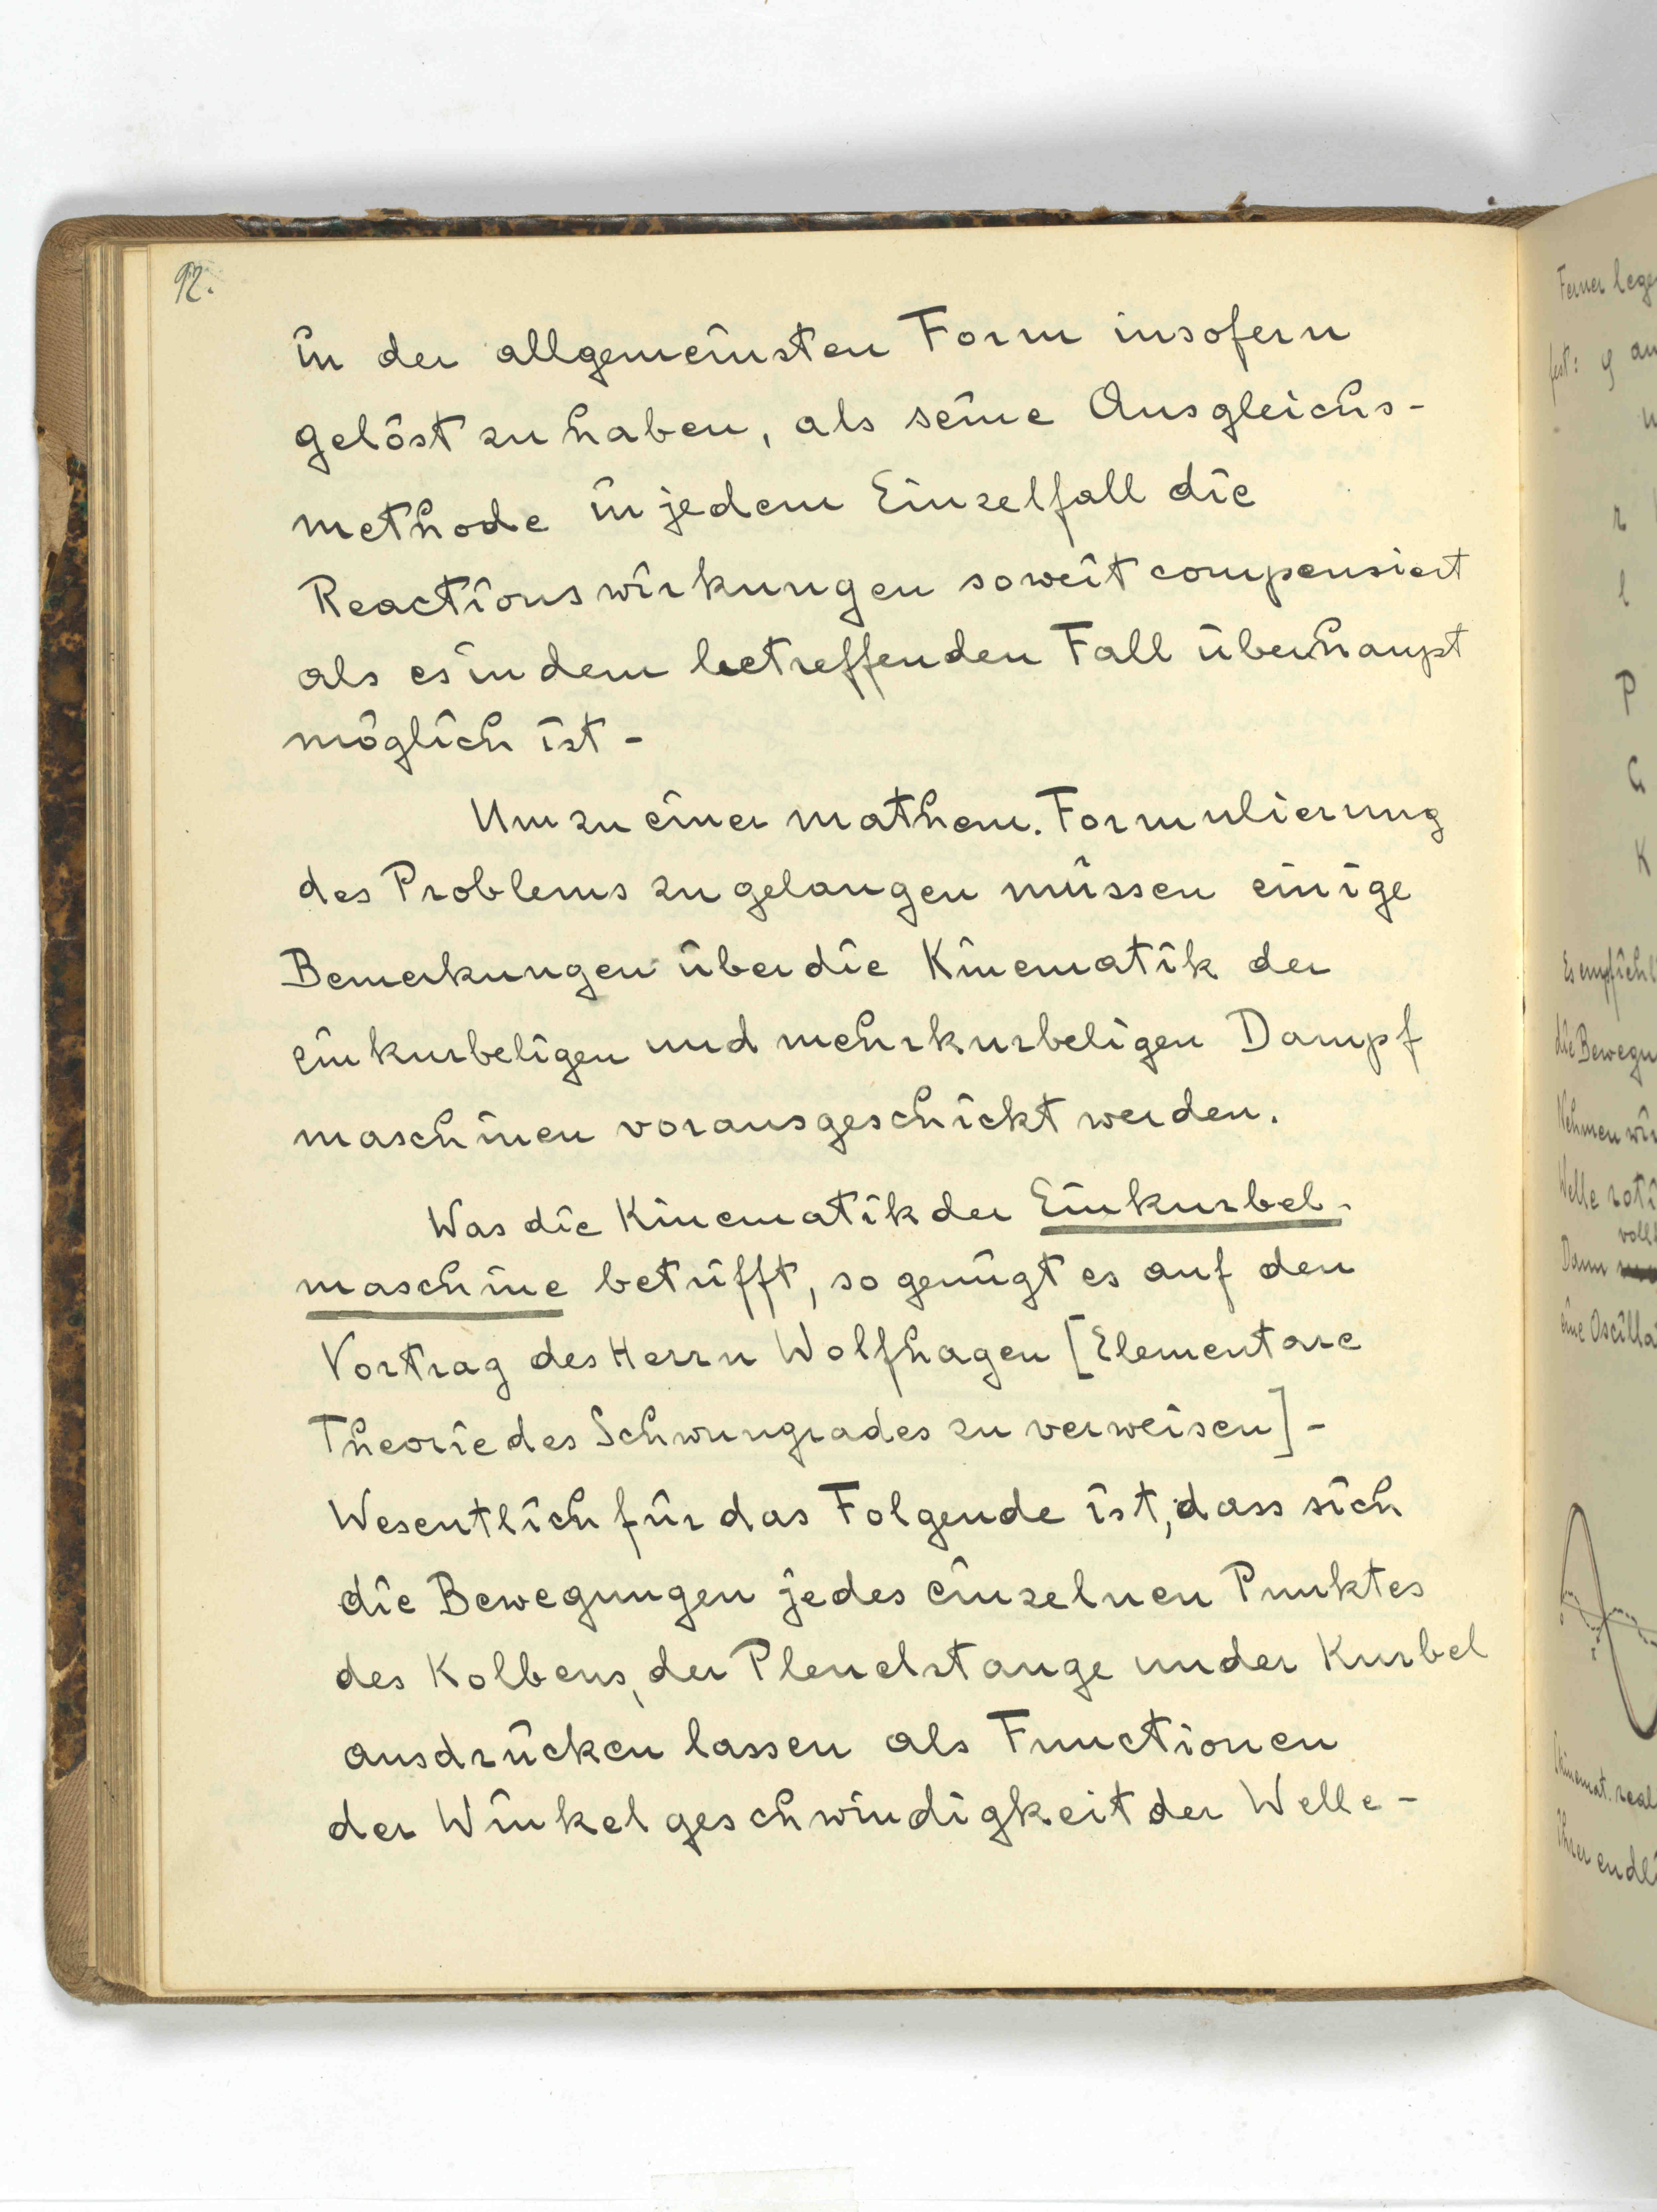 92.
in der allgemeinsten Form insofern
gelöst zu haben, als seine Ausgleichs-
methode in jedem Einzelfall die
Reactionswirkungen soweit compensiert
als es in dem betreffenden Fall überhaupt
möglich ist -
Um zu einer mathem. Formulierung
des Problems zu gelangen müssen einige
Bemerkungen über die Kinematik der
einkurbeligen und mehrkurbeligen Dampf
maschinen vorausgeschickt werden.
Was die Kinematik der Einkurbel-
maschine betrifft, so genügt es auf den
Vortrag des Herrn Wolfhagen [Elementare
Theorie des Schwungrades zu verweisen] -
Wesentlich für das Folgende ist, dass sich
die Bewegungen jedes einzelnen Punktes
des Kolbens, der Pleuelstange und der Kurbel
ausdrücken lassen als Functionen
der Winkelgeschwindigkeit der Welle -
Ferner lege
fest: φ an
r
l
P
G
K
Es empfiehl
die Bewegu
Nehmen wir
Welle roti
voll
Dann
eine Oscilla
kinemat. real
ihrer endli